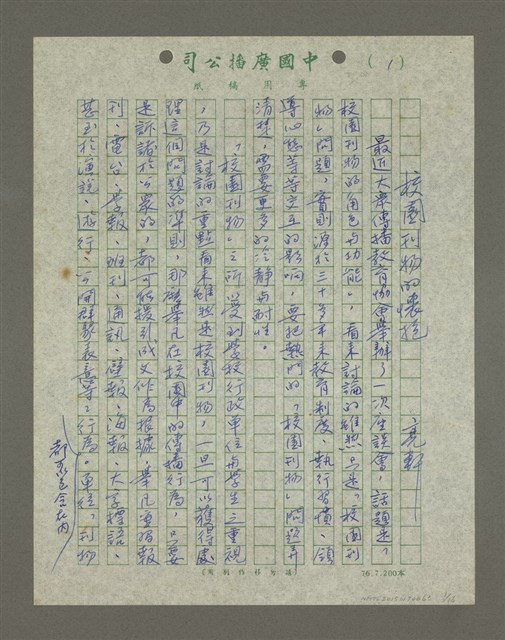 中國廣播公司
專用稿紙
(1)
校園刊物的懷抱
亮軒
最近大眾傳播教育協會舉辦了一次座談會，話題是「
校園刊物的角色與功能」，看來討論的雖然只是「校園刊
物」問題，實則源於三十多年來教育制度、執行習慣、領
導心態等等交互的影响，要把熱門的「校園刊物」問題弄
清楚，需要更多的冷靜與耐性。
「校園刊物」之所以受到學校行政單位與學生之重視
，乃是討論的重點看來雖然是校園刊物，一旦可以獲得處
理這個問題的準則，那麼舉凡在校園中的傳播行為，只要
是訴諸於公眾的，都可能援引成文作為根據，舉凡週報
刊、電台、學報、班刊、通訊、壁報、海報、大字標語、
甚至於演說、遊行、公開群聚表意等行為，
都可包含在內
單純「刊物
76.7.200本